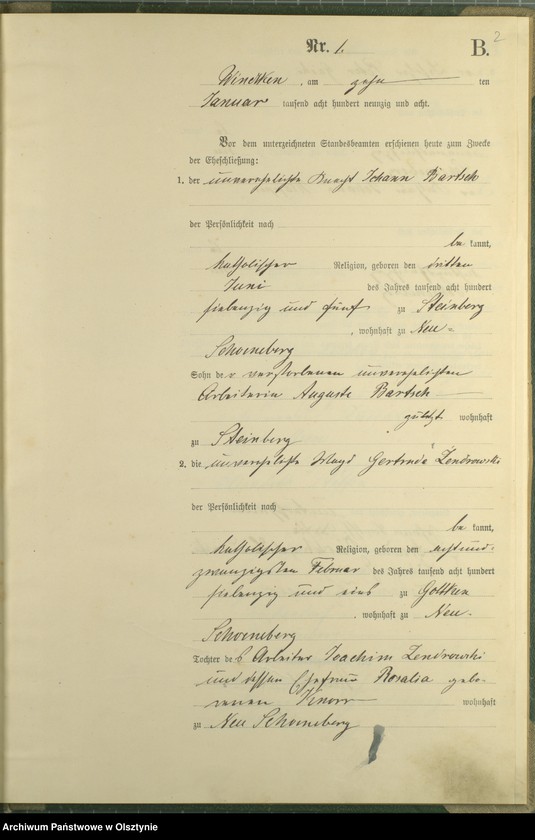 Nr. 1.
B.
2
Windtken, am zehn ten
Januar tausend acht hundert neunzig und acht.
Vor dem unterzeichneten Standesbeamten erschienen heute zum Zwecke
der Eheschließung:
1. der unverehelichte Knecht Johann Bartsch
der Persönlichkeit nach
be kannt,
katholischer Religion, geboren den dritten
Juni des Jahres tausend acht hundert
siebenzig und fünf zu Steinberg
, wohnhaft zu Neu-
Schoeneberg
Sohn der verstorbenen unverehelichten
Arbeiterin Auguste Bartsch
zuletzt wohnhaft
zu Steinberg
2. die unverehelichte Magd Gertruda Zendrowski
der Persönlichkeit nach
be kannt,
katholischer Religion, geboren den achtund-
zwanzigsten Februar des Jahres tausend acht hundert
siebenzig und eins zu Gottken
, wohnhaft zu Neu-
Schoeneberg
Tochter des Arbeiter Joachim Zendrowski
und dessen Ehefrau Rosalia gebo-
renen Knorr wohnhaft
zu Neu Schoeneberg
Archiwum Państwowe w Olsztynie